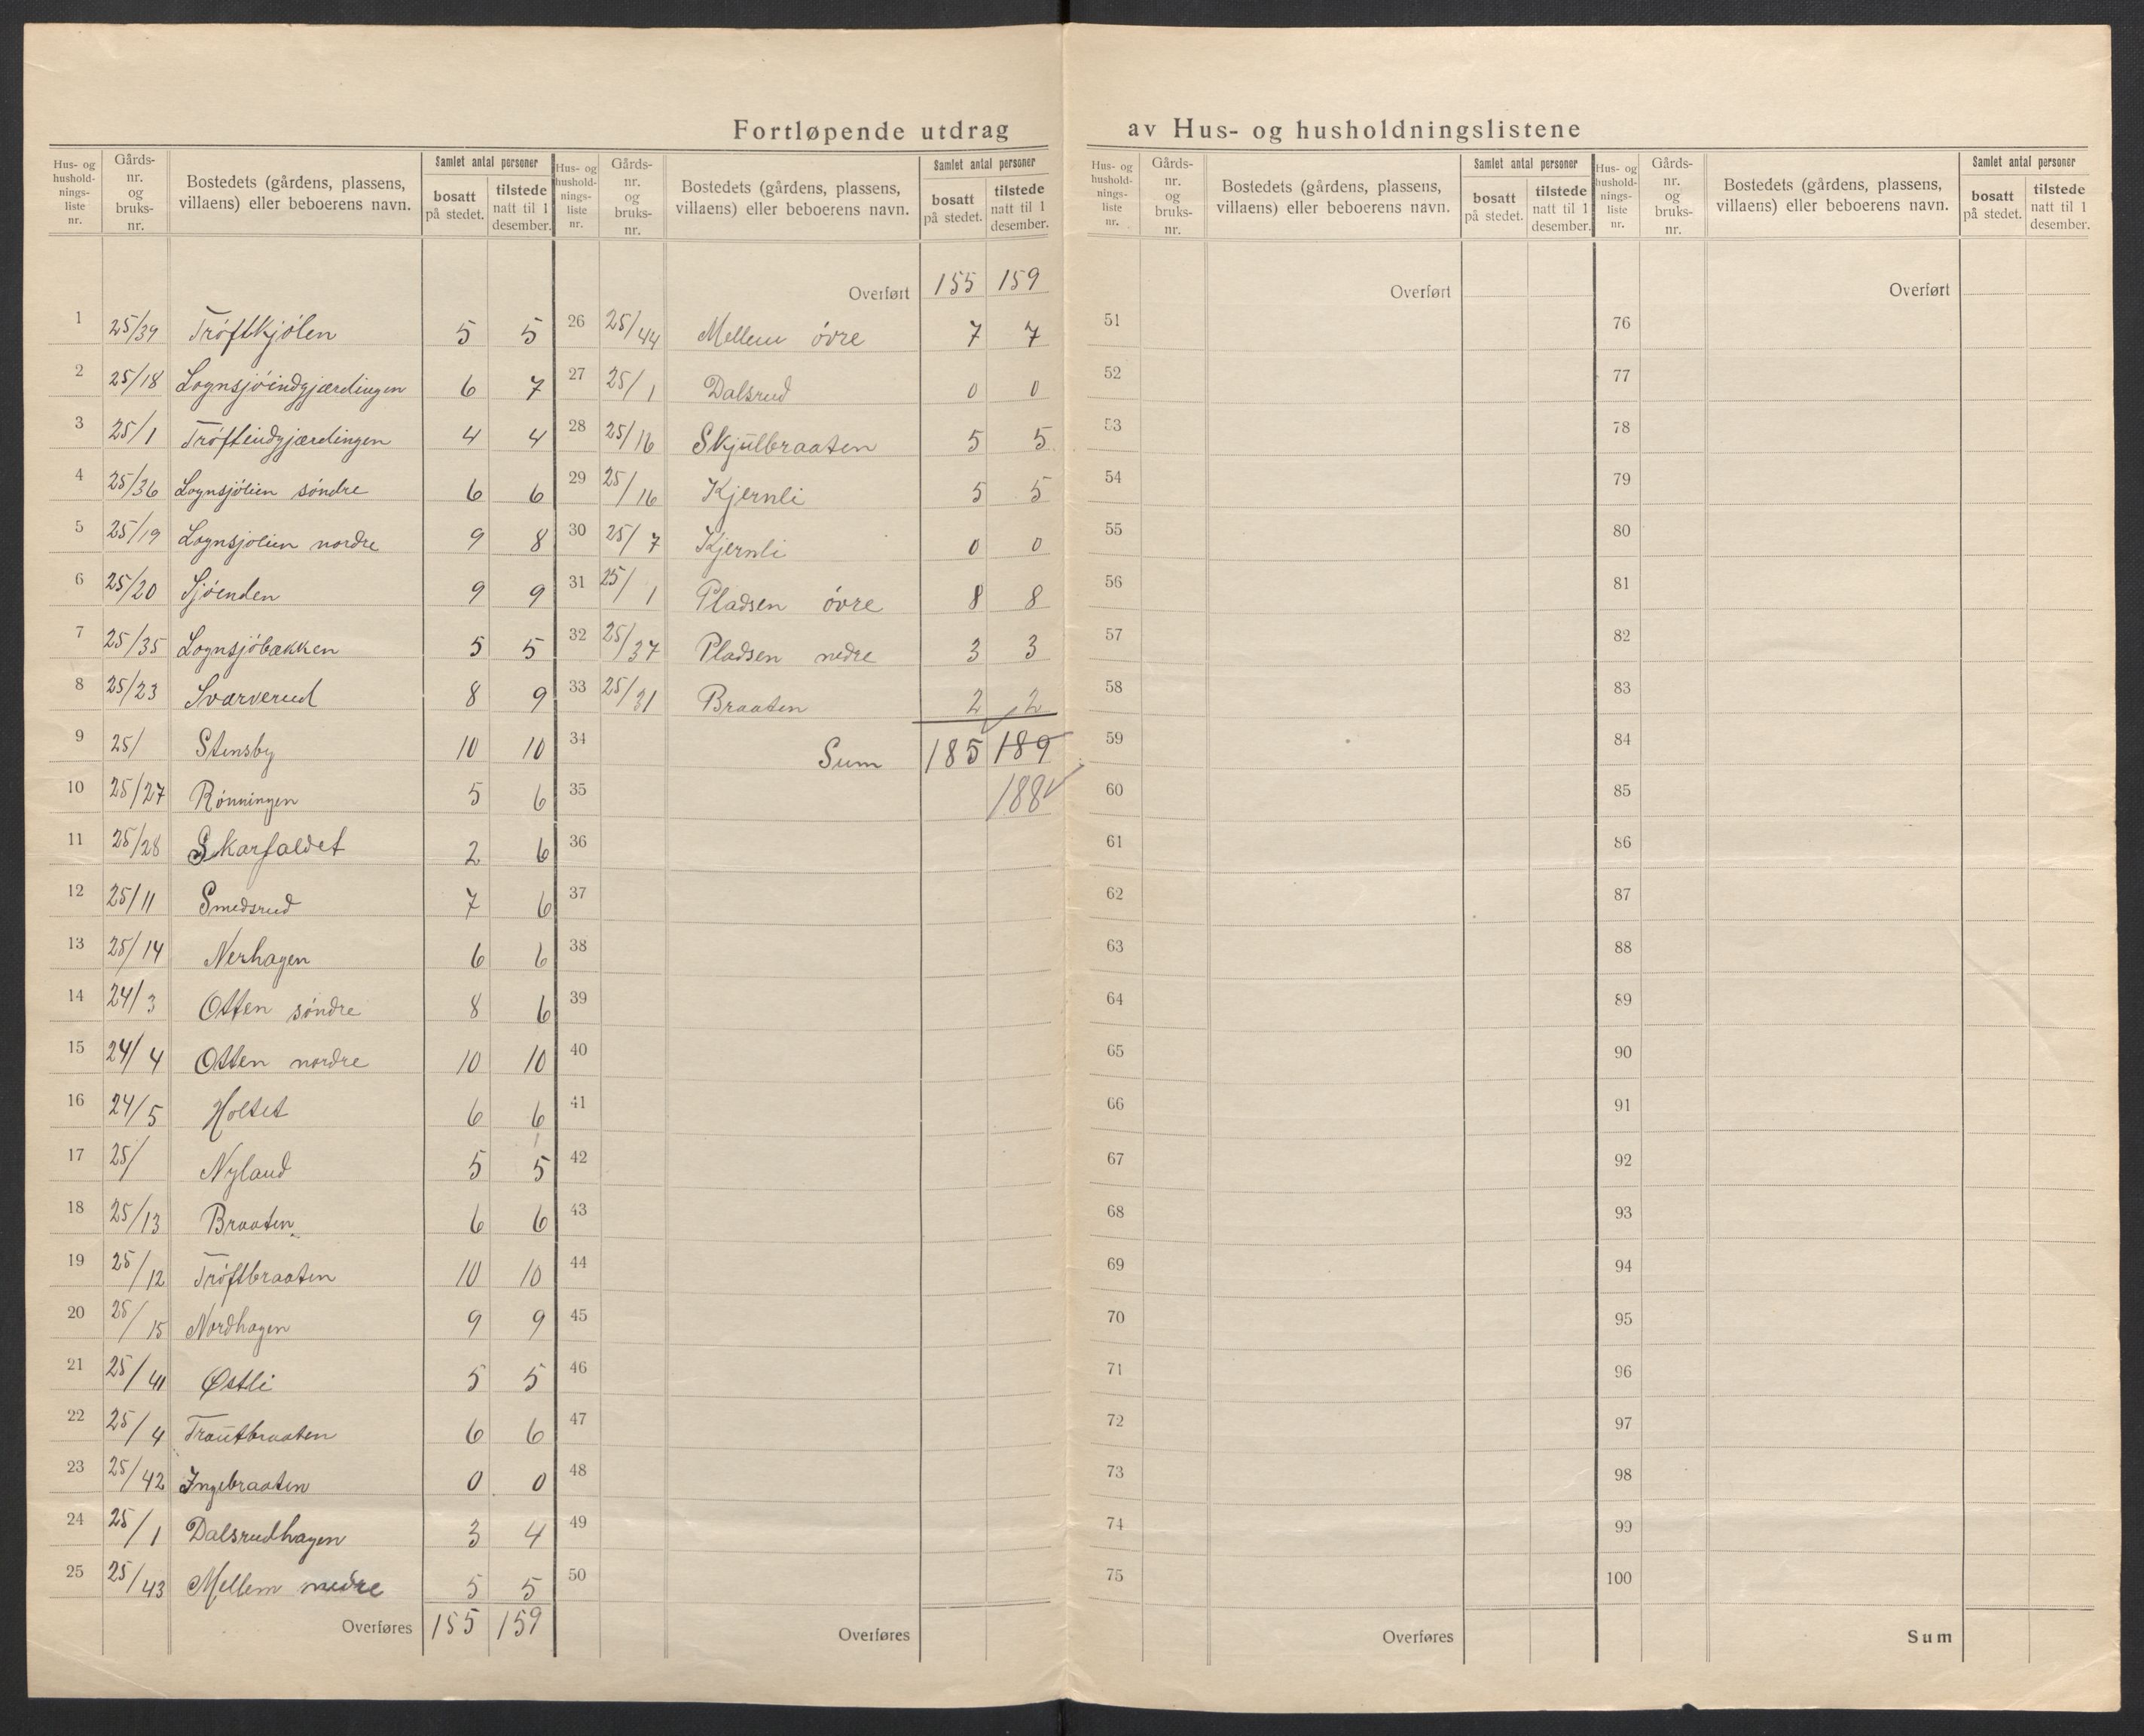 Fortløpende utdrag av Hus- og husholdningslistene
Hus- og hushold- nings- liste nr. | Gårds- nr. og bruks- nr. | Bostedets (gårdens, plassens, villaens) eller beboerens navn. | Samlet antal personer | bosatt på stedet. | tilstede natt til 1 desember.
1 25/39 Tröftkjölen 5 5
2 25/18 Lognsjöindgjærdingen 6 7
3 25/1 Tröftindgjærdingen 4 4
4 25/36 Lognsjölien söndre 6 6
5 25/19 Lognsjolien nordre 9 8
6 25/20 Sjöenden 9 9
7 25/35 Lognsjöbakken 5 5
8 25/23 Svarverud 8 9
9 25/ Stensby 10 10
10 25/27 Rönningen 5 6
11 25/28 Skarfaldet 2 6
12 25/11 Smedsrud 7 6
13 25/14 Nerhagen 6 6
14 24/3 Otten söndre 8 6
15 24/4 Otten nordre 10 10
16 24/5 Holtet 6 6
17 25/ Nyland 5 5
18 25/13 Braaten 6 6
19 25/12 Tröftbraaten 10 10
20 25/15 Nordhagen 9 9
21 25/41 Østli 5 5
22 25/4 Trautbraaten 6 6
23 25/42 Ingebraaten 0 0
24 25/1 Dalsrudhagen 3 4
25 25/43 Mellem nedre 5 5
Overføres 155 159
Hus- og hushold- nings- liste nr. | Gårds- nr. og bruks- nr. | Bostedets (gårdens, plassens, villaens) eller beboerens navn. | Samlet antal personer | bosatt på stedet. | tilstede natt til 1 desember.
Overført 155 159
26 25/44 Mellem övre 7 7
27 25/1 Dalsrud 0 0
28 25/16 Skjulbraaten 5 5
29 25/16 Kjernli 5 5
30 25/7 Kjernli 0 0
31 25/1 Pladsen övre 8 8
32 25/37 Pladsen nedre 3 3
33 25/31 Braaten 2 2
34 Sum 185 189
35 188
36
37
38
39
40
41
42
43
44
45
46
47
48
49
50
Overføres
Hus- og hushold- nings- liste nr. | Gårds- nr. og bruks- nr. | Bostedets (gårdens, plassens, villaens) eller beboerens navn. | Samlet antal personer | bosatt på stedet. | tilstede natt til 1 desember.
Overført
51
52
53
54
55
56
57
58
59
60
61
62
63
64
65
66
67
68
69
70
71
72
73
74
75
Overføres
Hus- og hushold- nings- liste nr. | Gårds- nr. og bruks- nr. | Bostedets (gårdens, plassens, villaens) eller beboerens navn. | Samlet antal personer | bosatt på stedet. | tilstede natt til 1 desember.
Overført
76
77
78
79
80
81
82
83
84
85
86
87
88
89
90
91
92
93
94
95
96
97
98
99
100
Sum